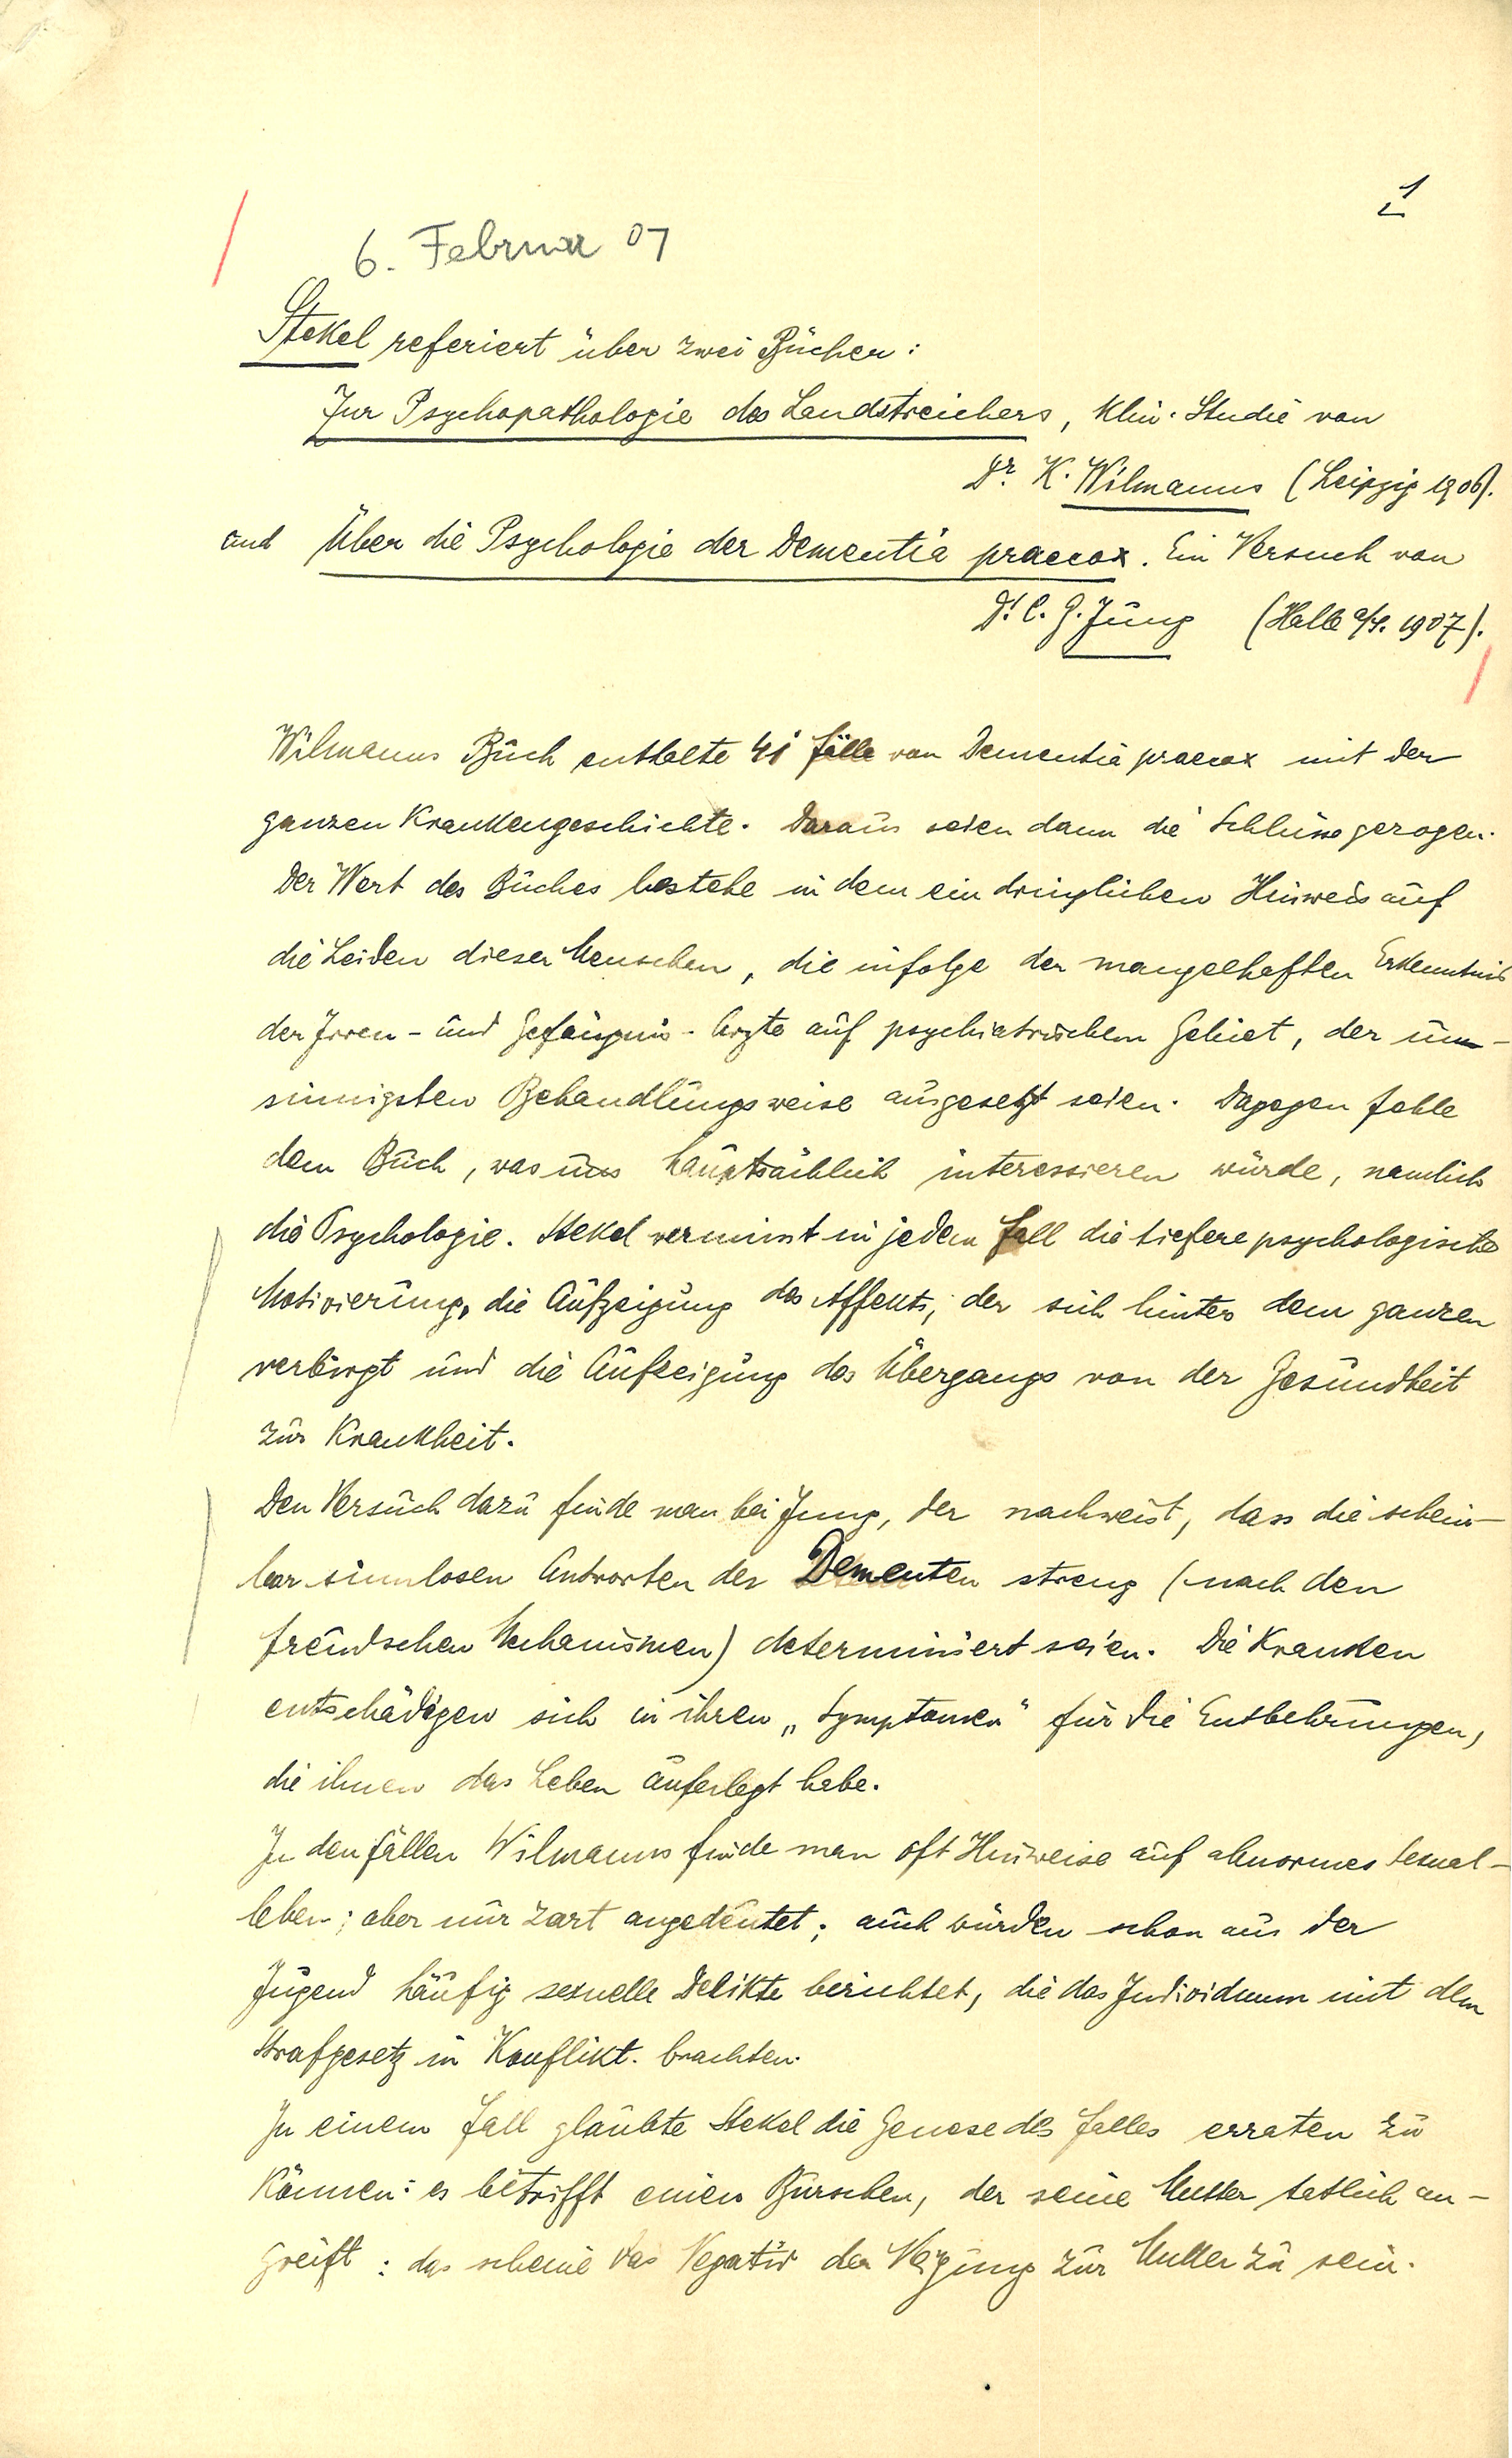 1
6. Februar 07
Stekel referiert über zwei Bücher:
Zur Psychopathologie des Landstreichers, klin. Studie von
Dr. K. Wilmanns (Leipzig 1906).
und Über die Psychologie der Dementia praecox. Ein Versuch von
Dr. C. G. Jung (Halle a/S. 1907).
Wilmanns Buch enthalte 41 Fälle von Dementia praecox mit der
ganzen Krankengeschichte. Daraus seien dann die Schlüsse gezogen.
Der Wert des Buches bestehe in dem eindringlichen Hinweis auf
die Leiden dieser Menschen, die infolge der mangelhaften Erkenntnis
der Irren- und Gefängnis-Ärzte auf psychiatrischem Gebiet, der un-
sinnigsten Behandlungsweise ausgesetzt seien. Dagegen fehle
dem Buch, was uns hauptsächlich interessieren würde, nämlich
die Psychologie. Stekel vermisst in jedem Fall die tiefere psychologische
Motivierung, die Aufzeigung des Affekts, der sich hinter dem ganzen
verbirgt und die Aufzeigung des Übergangs von der Gesundheit
zur Krankheit.
Den Versuch dazu finde man bei Jung, der nachweist, dass die schein-
bar sinnlosen Antworten der Dementen streng (nach den
freudschen Mechanismen) determiniert seien. Die Kranken
entschädigen sich in ihren „Symptomen" für die Entbehrungen,
die ihnen das Leben auferlegt habe.
In den Fällen Wilmanns finde man oft Hinweise auf abnormes Sexual-
leben; aber nur zart angedeutet; auch würden schon aus der
Jugend häufig sexuelle Delikte berichtet, die das Individuum mit dem
Strafgesetz in Konflikt. brachten.
In einem Fall glaubte Stekel die Genese des Falles erraten zu
können: es betrifft einen Burschen, der seine Mutter tätlich an-
greift: das scheine das Negativ der Neigung zur Mutter zu sein.